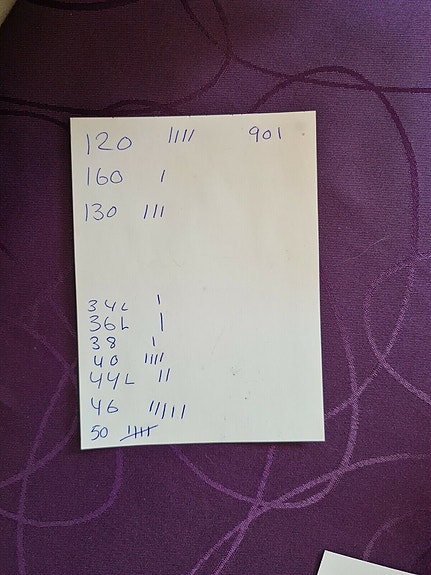 120 |||| 901
160 |
130 |||
34L |
36L |
38 |
40 ||||
44L ||
46 |||||
50 ||||